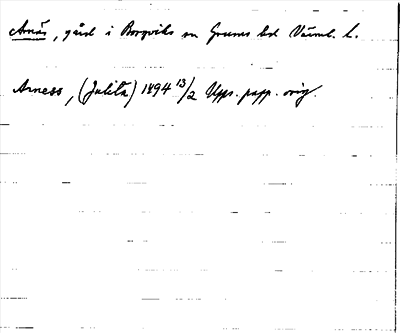 Arnäs, gård i Borgviks sn Grums hd Värml. l.
Arness, (Julita) 1494 13/2 Upps. papp. orig.